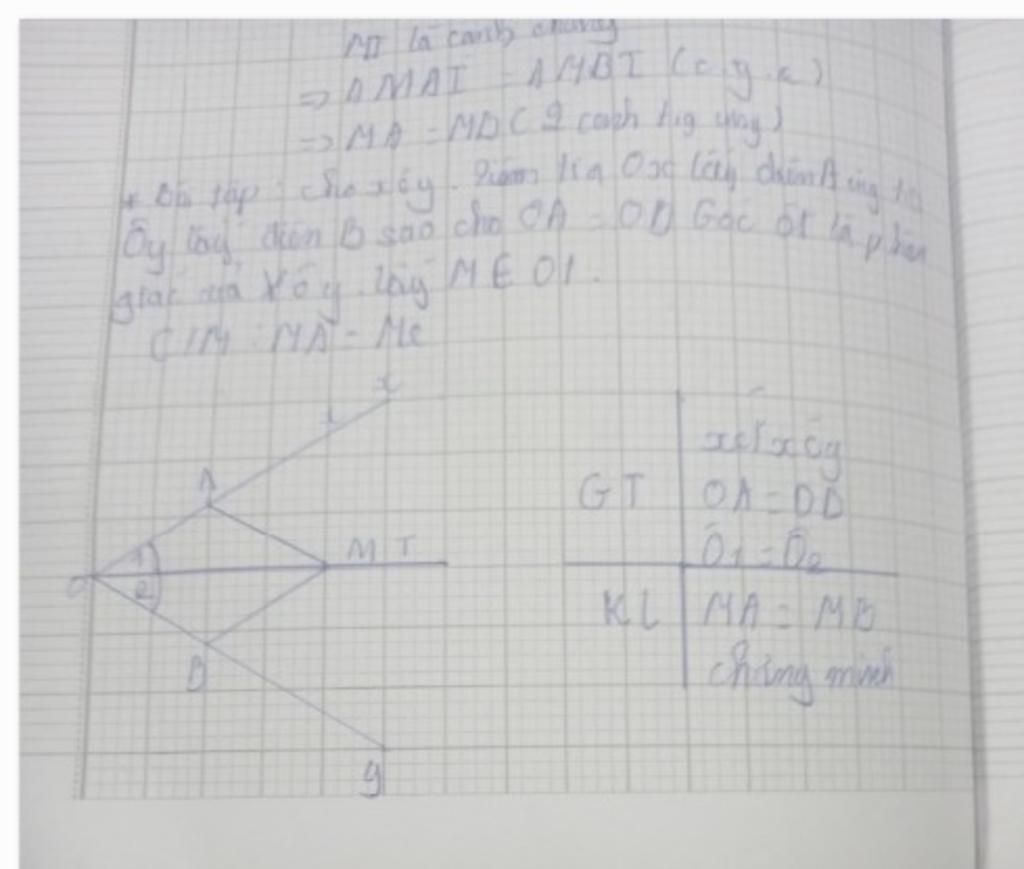 MI là cạnh chung
=> ΔMAI = ΔMBI (c.g.c)
=> MA = MB (2 cạnh tg ứng)
* Bài tập: Cho xôy. Trên tia Ox lấy điểm A
Oy lấy điểm B sao cho OA = OB Góc Ot là phân
giác của xôy. lấy M ∈ Ot.
C/M: MA = MC
x
A
1
2
O
M T
B
y
xét xôy
GT OA = OB
Ô1 = Ô2
KL MA = MB
chứng minh